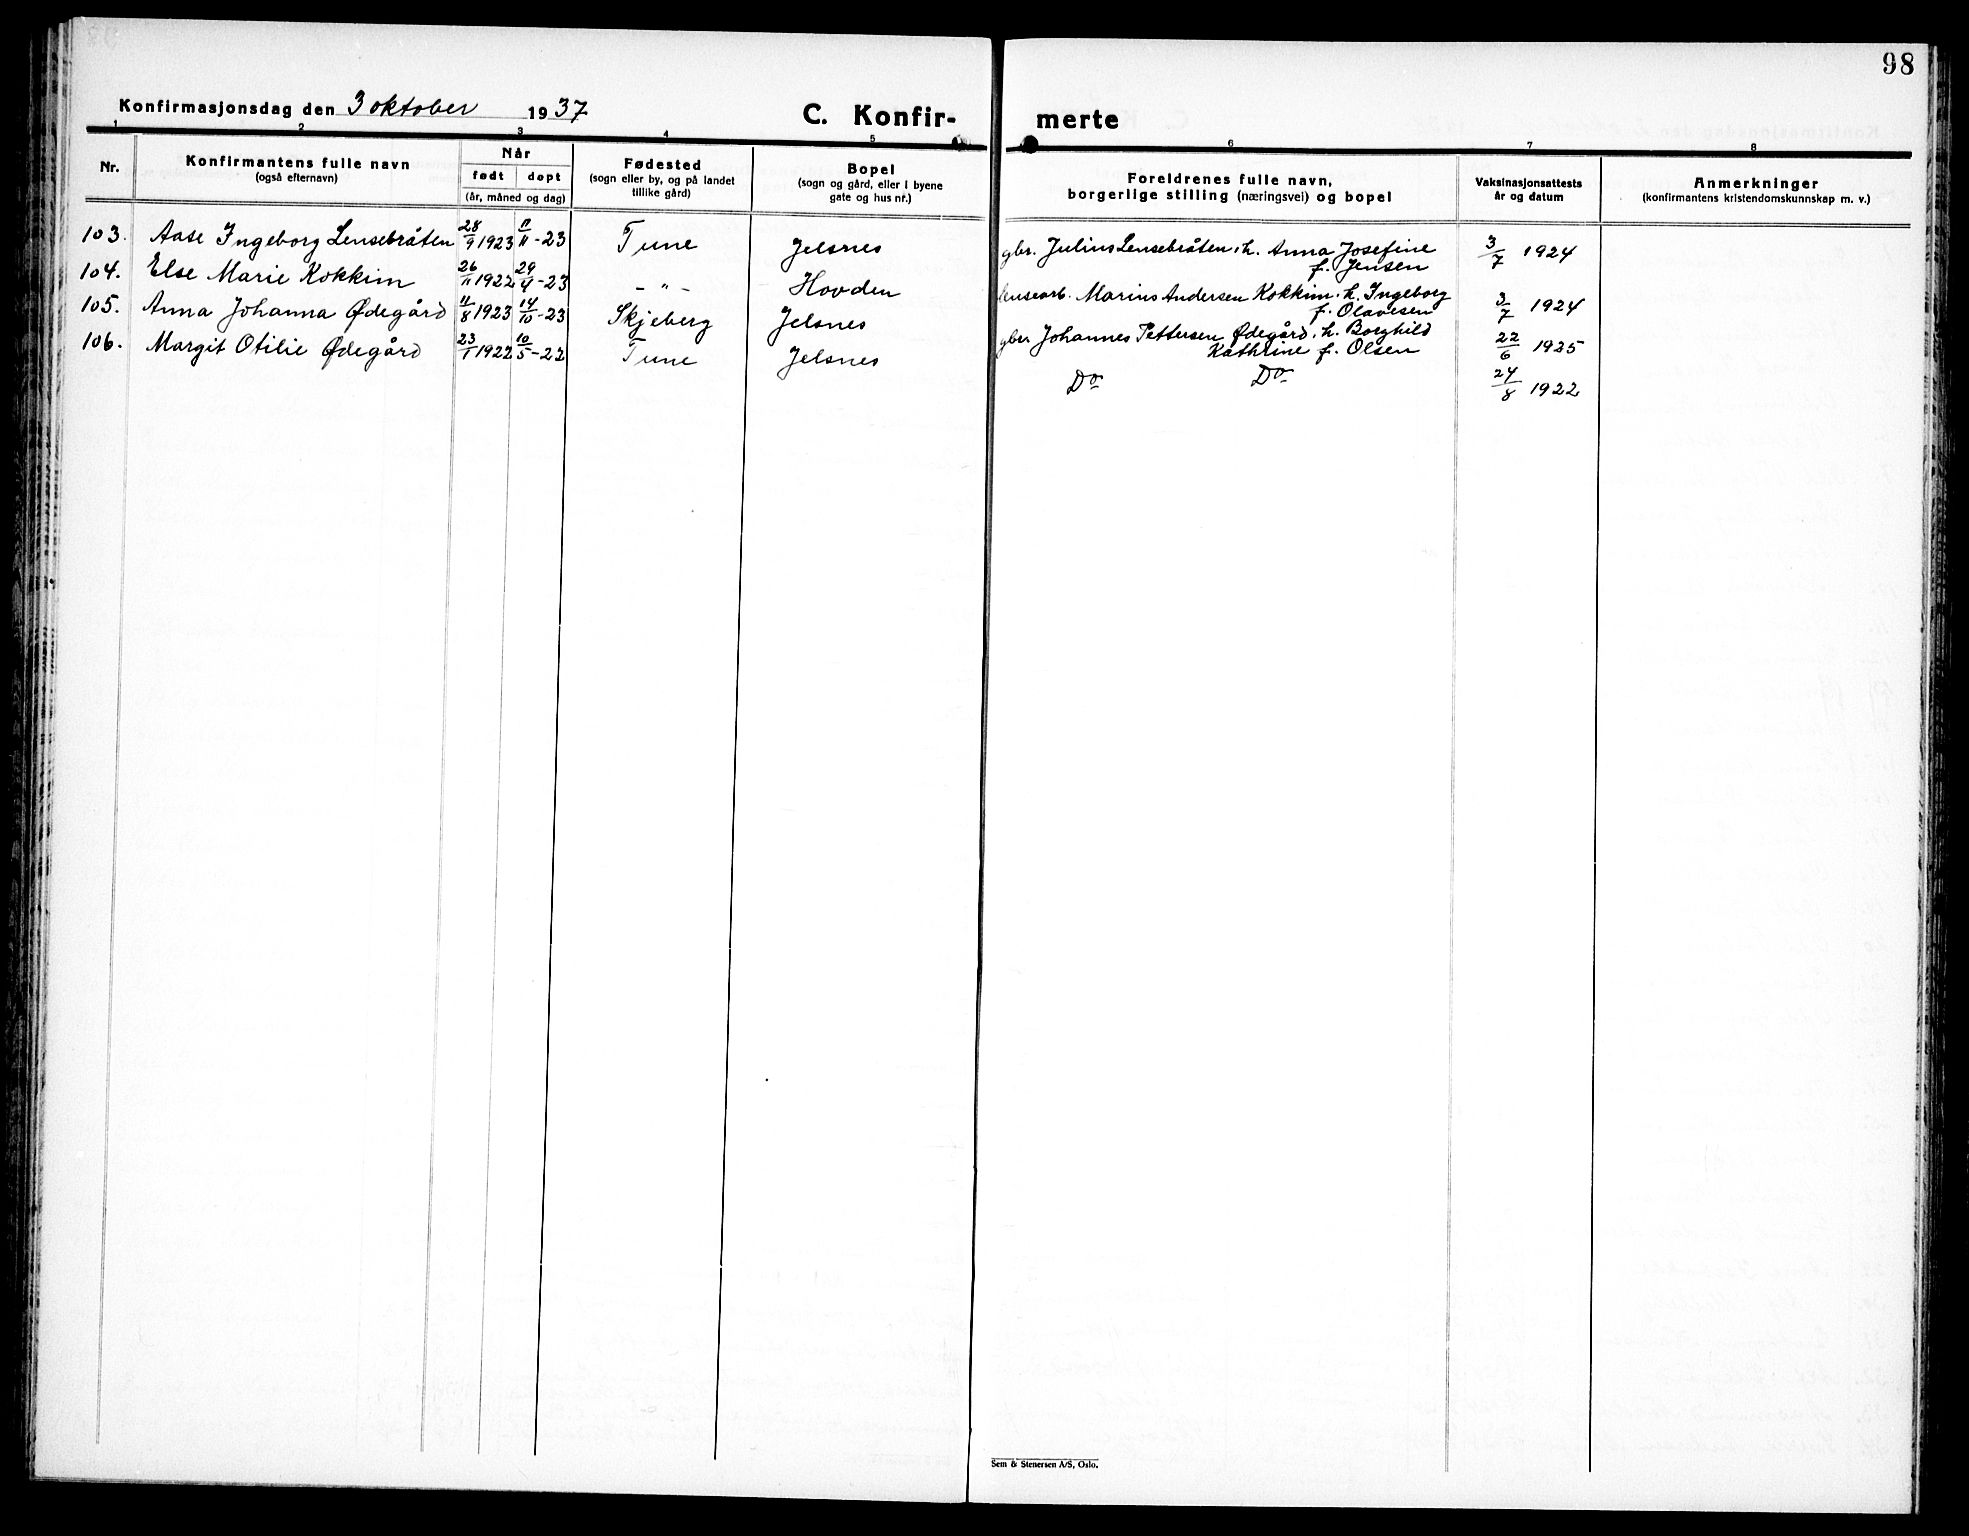 98
Konfirmasjonsdag den 3 oktober 1937 C. Konfir- merte
1 2 3 4 5 6 7 8
Nr.
Konfirmantens fulle navn
(også efternavn)
Når
født døpt
(år, måned og dag)
Fødested
(sogn eller by, og på landet
tillike gård)
Bopel
(sogn og gård, eller i byene
gate og hus nr.)
Foreldrenes fulle navn,
borgerlige stilling (næringsvei) og bopel
Vaksinasjonsattests
år og datum
Anmerkninger
(konfirmantens kristendomskunnskap m. v.)
103. Aase Ingeborg Lensebråten 28/9 1923 11-23 Tune Jelsnes gbr. Julius Lensebråten. h. Anna Josefine
f. Jensen 3/7 1924
104. Else Marie Kokkim 26/11 1922 29/4-23 - " - Hovden lensearb. Marius Andersen Kokkim. h. Ingeborg
f. Olavesen 3/7 1924
105. Anna Johanna Ødegård 11/8 1923 14/10-23 Skjeberg Jelsnes gbr. Johannes Pettersen Ødegård. h. Borghild
Kathrine f. Olsen 22/6 1925
106. Margit Otilie Ødegård 23/1 1922 10/5-22 Tune Jelsnes Do Do 24/8 1922
Sem & Stenersen A/S, Oslo.